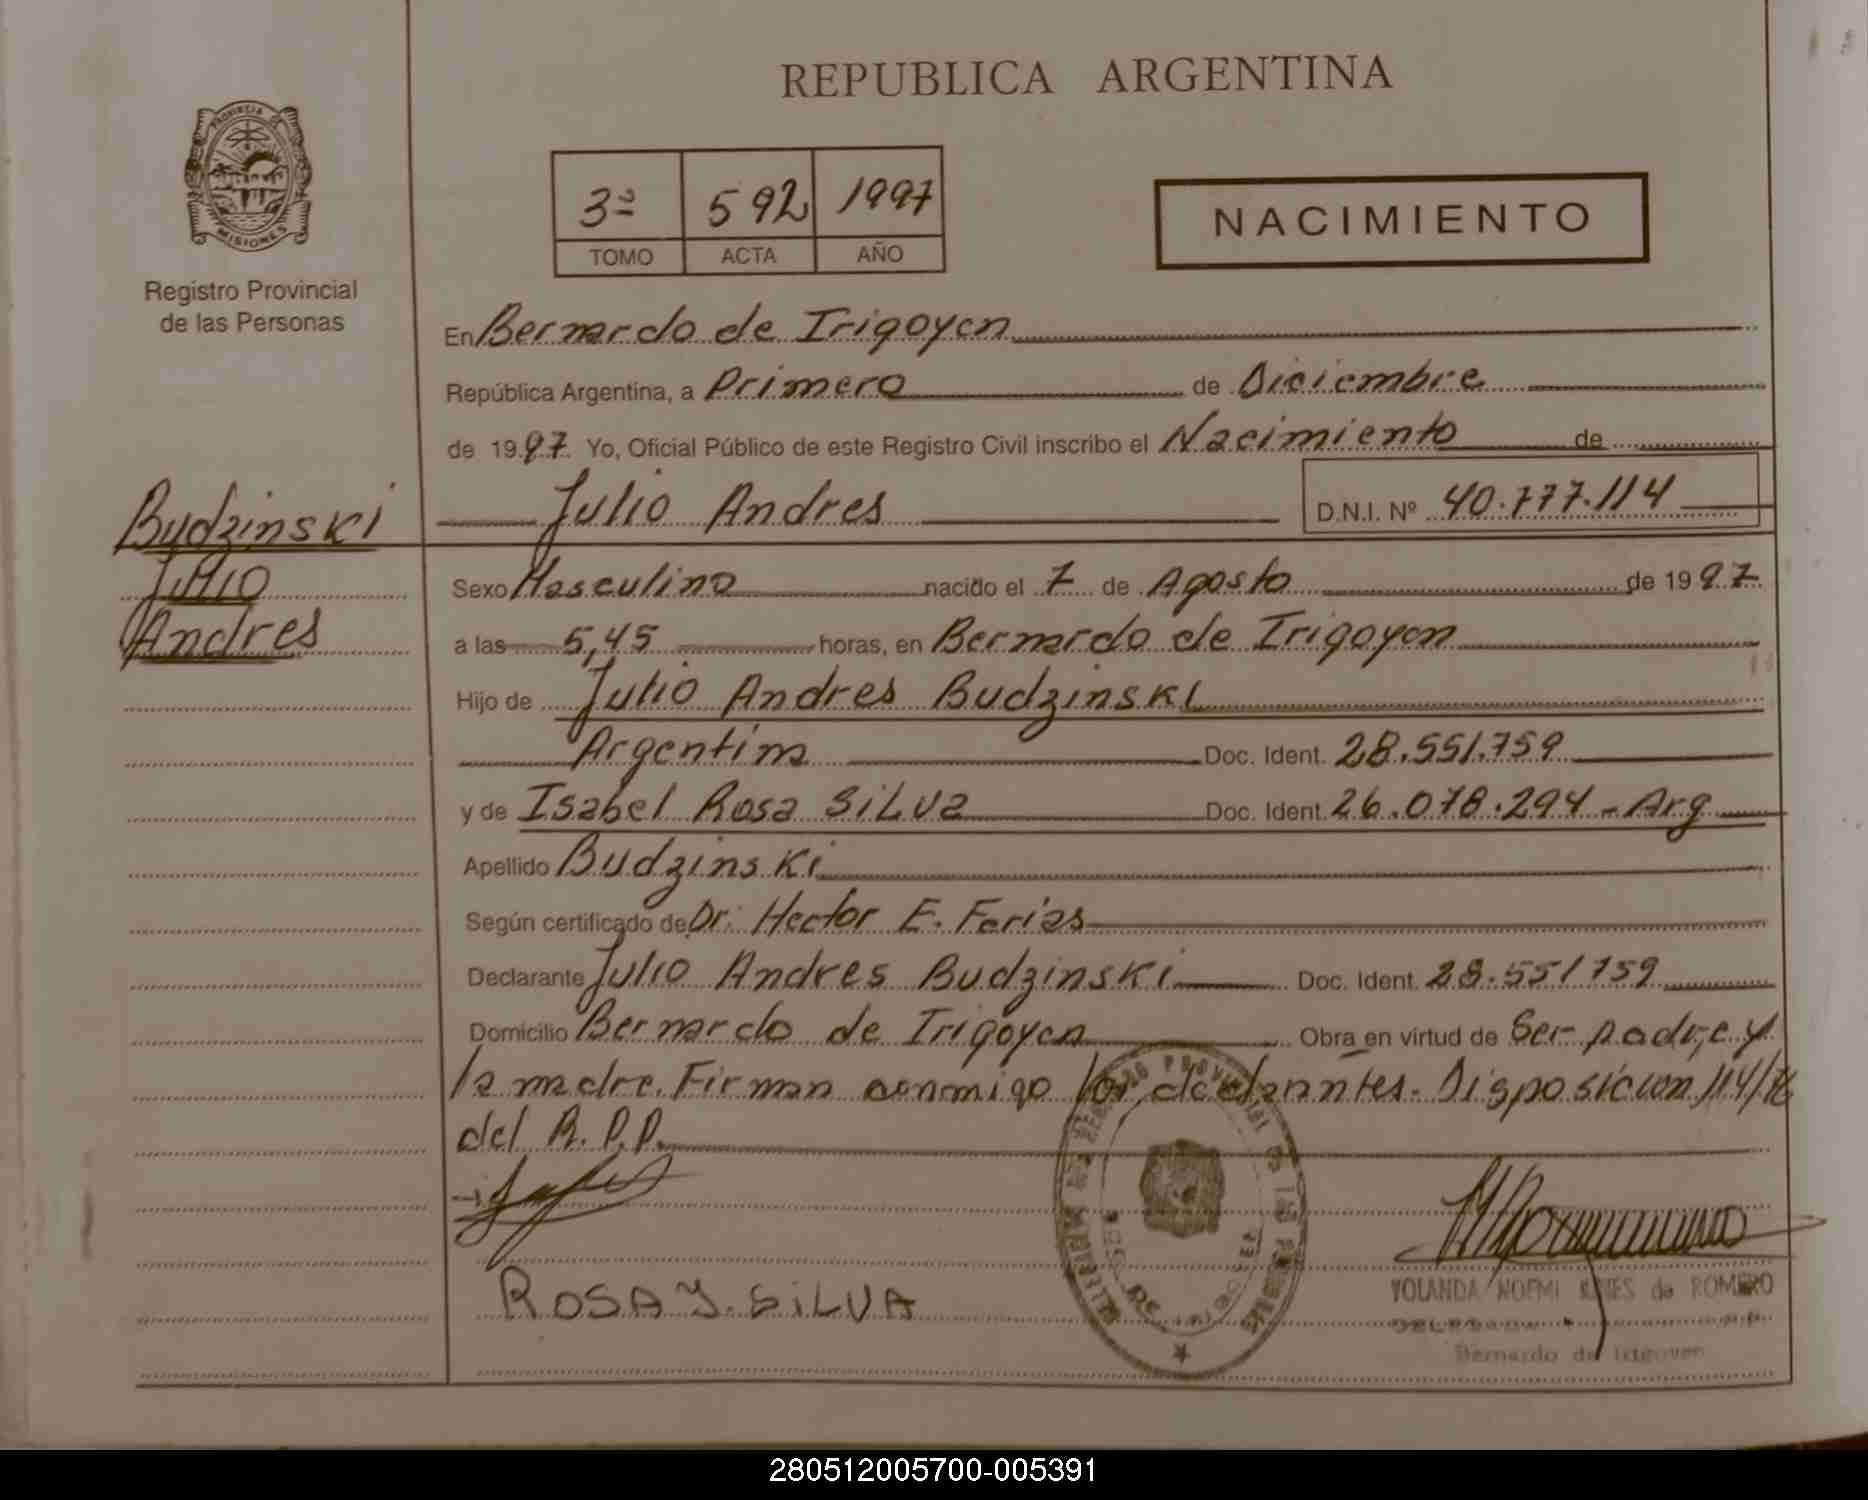 REPUBLICA ARGENTINA
PROVINCIA DE
MISIONES
Registro Provincial
de las Personas
3º 592 1997
TOMO ACTA AÑO
NACIMIENTO
En Bernardo de Irigoyen
República Argentina, a Primero de Diciembre
de 1997 Yo, Oficial Público de este Registro Civil inscribo el Nacimiento de
Julio Andres D.N.I. Nº 40.777.114
Budzinski
Julio
Andres
Sexo Masculino nacido el 7 de Agosto de 1997
a las 5,45 horas, en Bernardo de Irigoyen
Hijo de Julio Andres Budzinski
Argentina Doc. Ident. 28.551.759
y de Isabel Rosa SiLva Doc. Ident. 26.078.294 - Arg
Apellido Budzinski
Según certificado de Dr. Hector E. Ferias
Declarante Julio Andres Budzinski Doc. Ident. 28.551759
Domicilio Bernardo de Irigoyen Obra en virtud de Ser padre, y
la madre. Firman conmigo los Disposición 114/76
del R.P.P.
ROSA I. SiLVA
YOLANDA NOEMI de ROMERO
Bernardo de Irigoyen
280512005700-005391